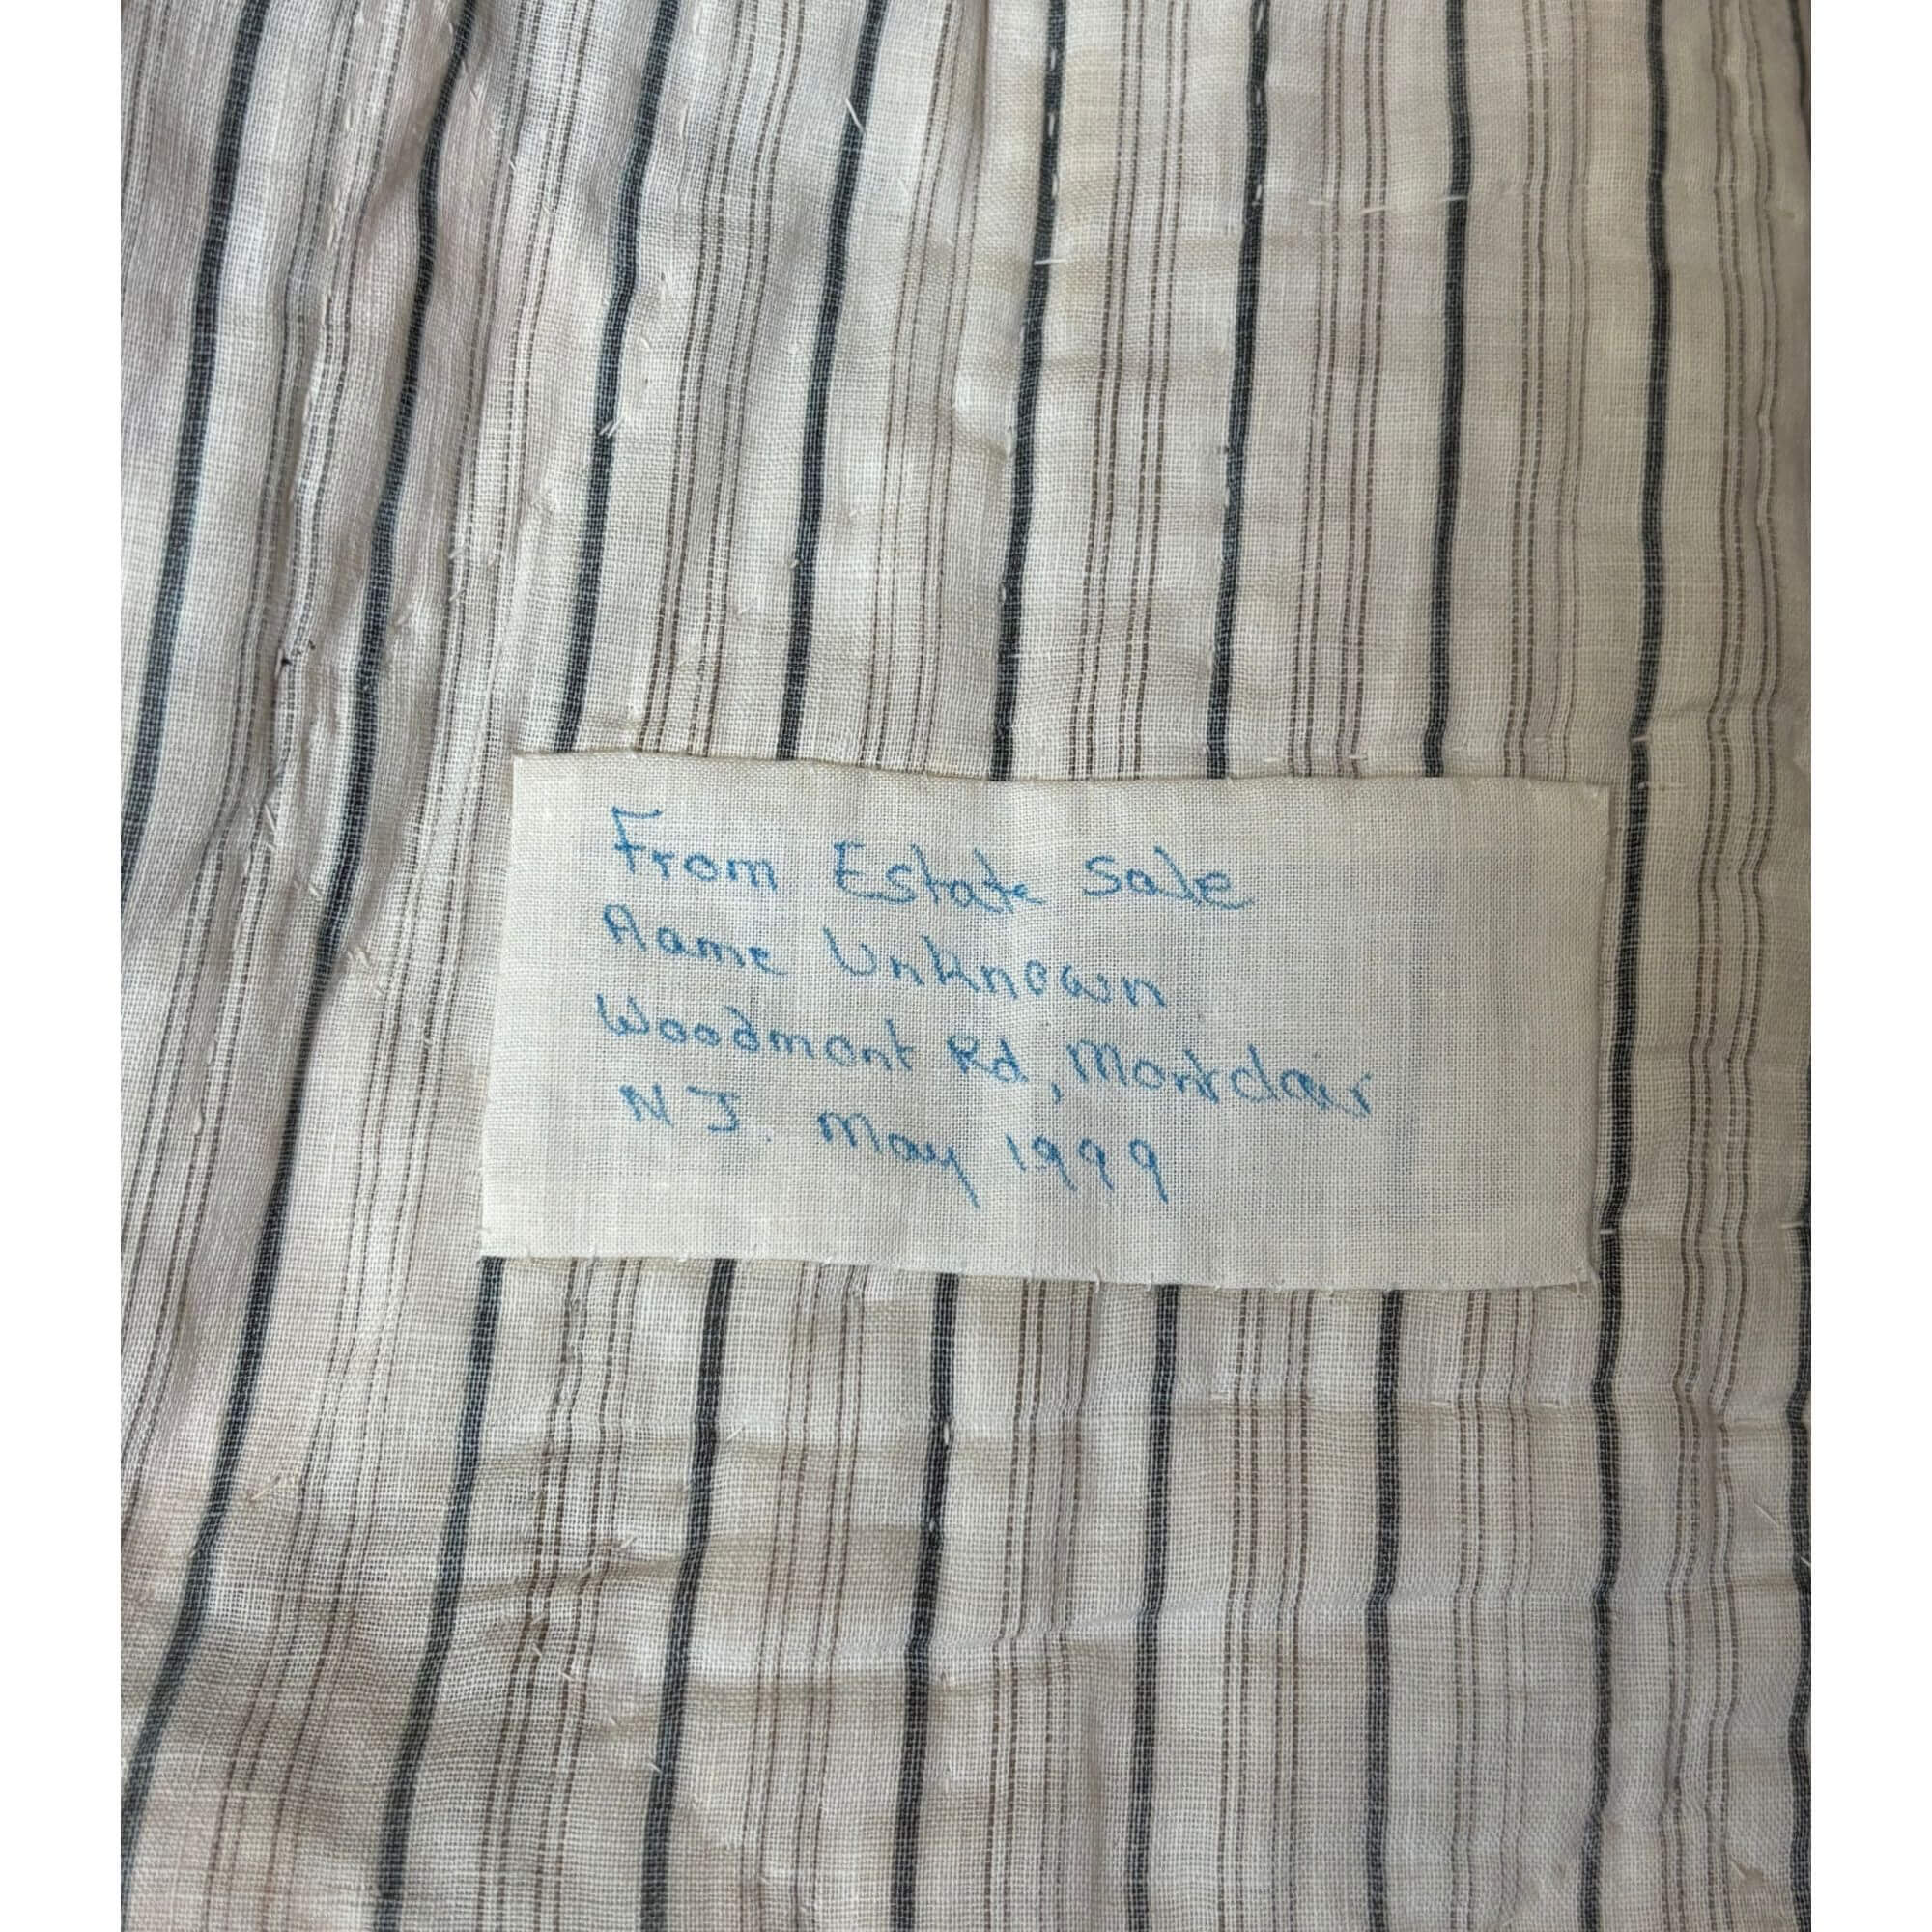 From Estate Sale
Name Unknown
Woodmont Rd, Montclair
N J. May 1999